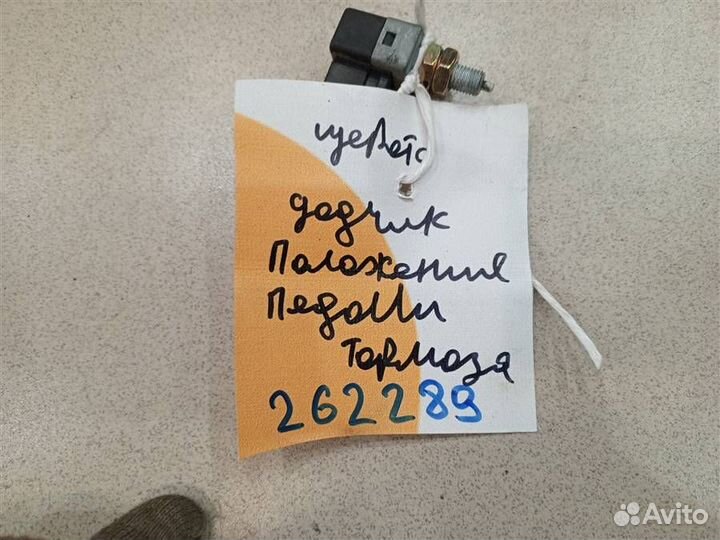 дадчик
Палажения
Педали
Тормоза
262289
Avito